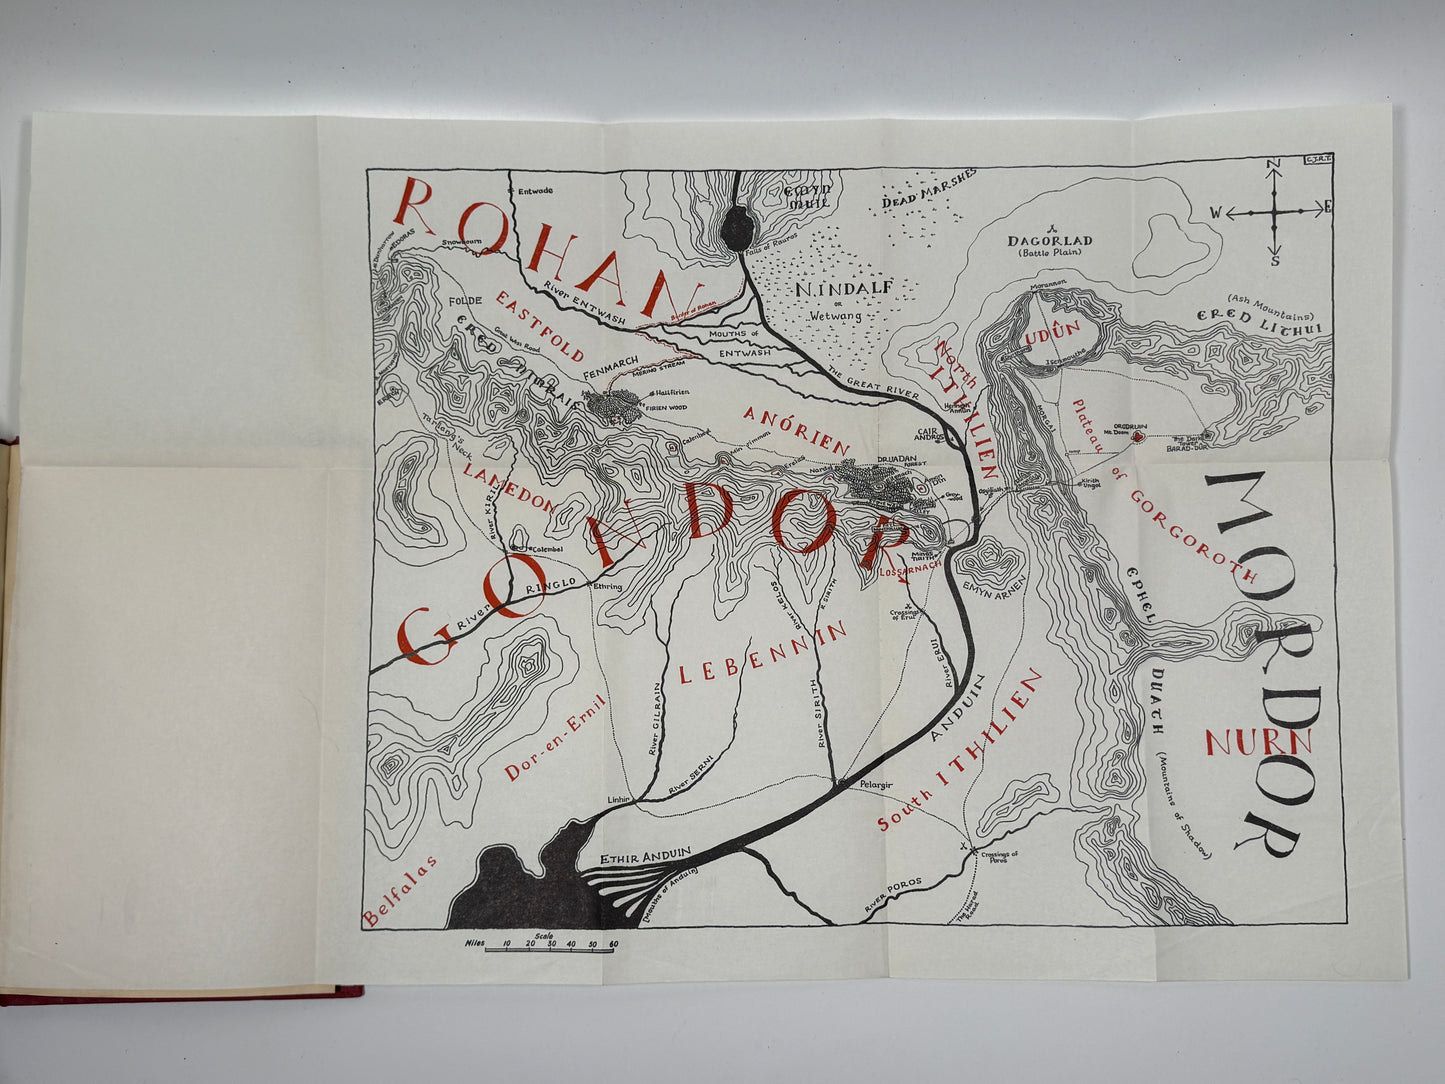 ROHAN
Entwade
EMYN
MUIL
DEAD MARSHES
N
C.J.R.T.
W
E
S
Dunharrow
EDORAS
Snowbourn
Falls of Rauros
DAGORLAD
(Battle Plain)
FOLDE
EASTFOLD
RIVER ENTWASH
Border of Rohan
NINDALF
OR
Wetwang
Morannon
UDÛN
Isenmouthe
(Ash Mountains)
ERED LITHUI
ERED NIMRAIS
Great West Road
FENMARCH
MERING STREAM
MOUTHS OF
ENTWASH
THE GREAT RIVER
North
ITHILIEN
Henneth
Annûn
Halifirien
FIRIEN WOOD
ANÓRIEN
CAIR
ANDROS
MORGAI
Plateau of GORGOROTH
ORODRUIN
Mt. Doom
The Dark
Tower
BARAD-DÛR
Erech
Tarlang's
Neck
Calenhad
Min-Rimmon
Erelas
Nardol
DRUADAN
FOREST
Amon
Dîn
Osgiliath
Kirith
Ungol
LAMEDON
RIVER KIRIL
Calembel
GONDOR
Minas
Tirith
LOSSARNACH
EMYN ARNEN
MORDOR
River RINGLO
Ethring
River KELOS
R. SIRITH
Crossings
of Erui
River ERUI
EPHEL
DUATH
(Mountains of Shadow)
LEBENNIN
Dor-en-Ernil
River GILRAIN
River SERNI
River SIRITH
ANDUIN
South ITHILIEN
NURN
Linhir
Pelargir
Belfalas
ETHIR ANDUIN
(Mouths of Anduin)
Crossings of
Poros
RIVER POROS
The Harad
Road
Scale
Miles 10 20 30 40 50 60